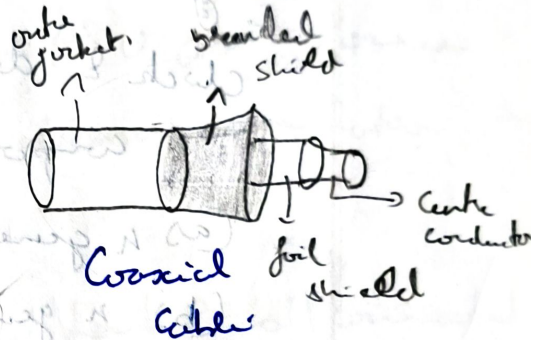 outer
jacket.
braided
shield
centre
conducto
foil
shield
Coaxial
Cable